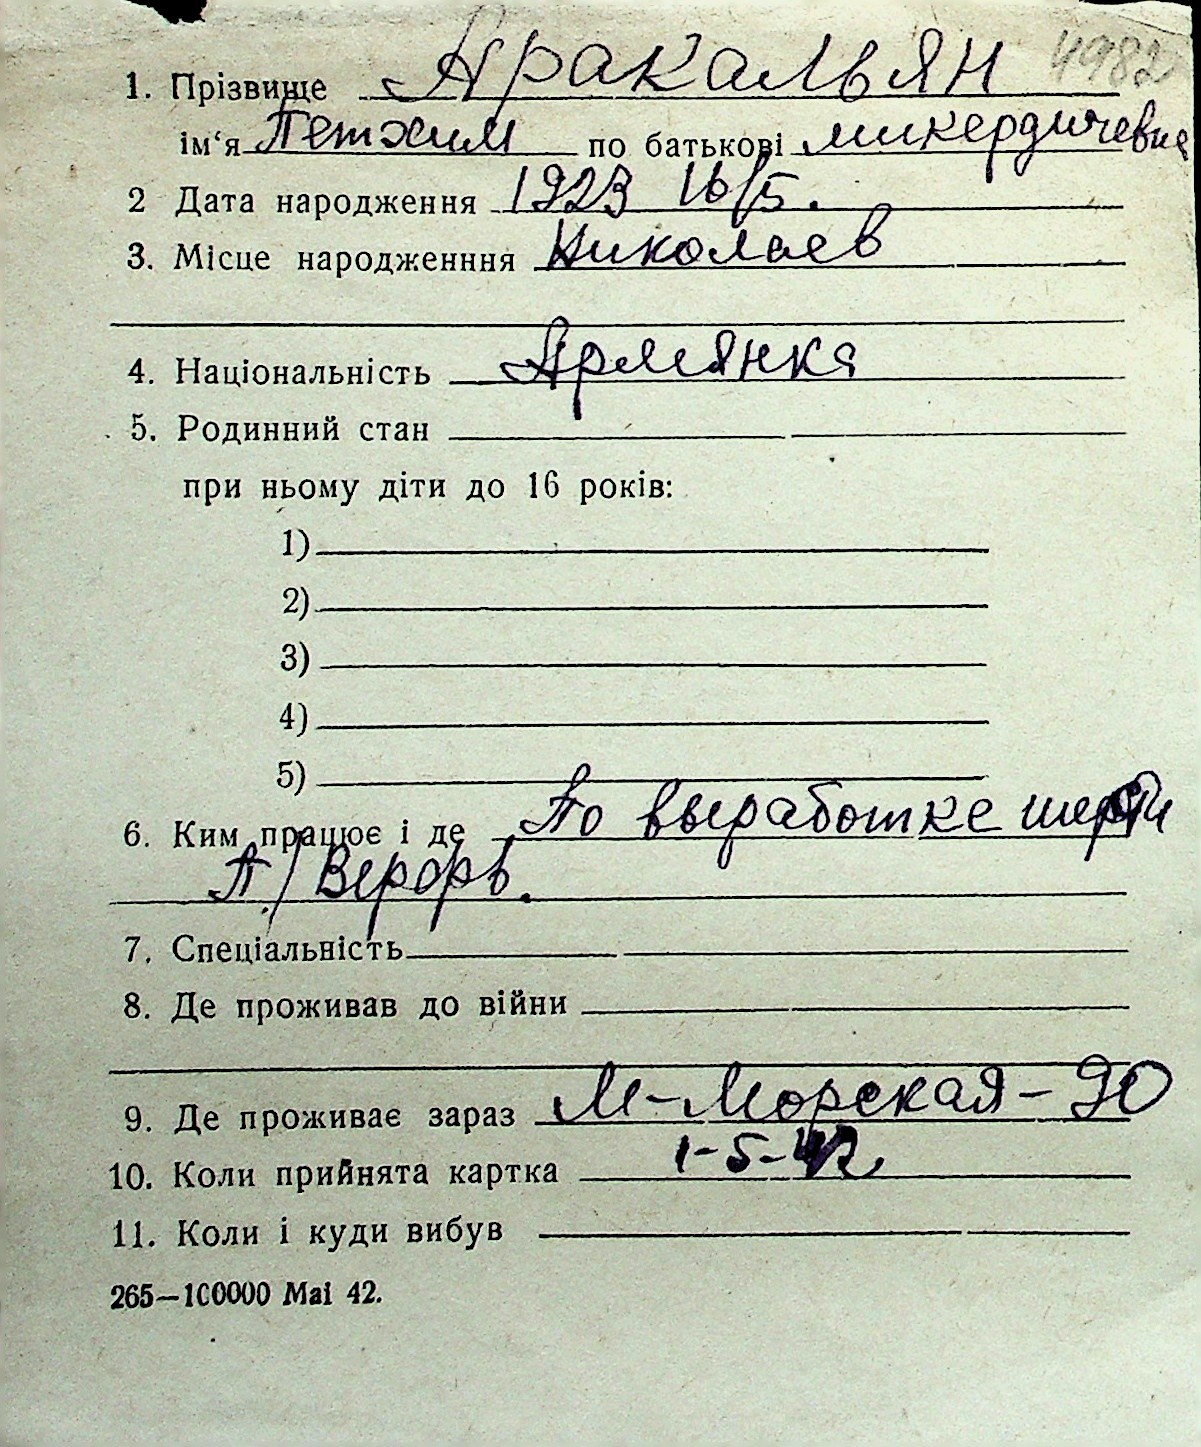 4982
1. Прізвище Аракальян
ім‘я Петхим по батькові микердичевна
2 Дата народження 1923 16/5.
3. Місце народженння Николаев
4. Національність Армянка
5. Родинний стан
при ньому діти до 16 років:
1)
2)
3)
4)
5)
6. Ким працює і де По выработке шерсти
П/Верфь.
7. Спеціальність
8. Де проживав до війни
9. Де проживає зараз М-Морская-90
10. Коли прийнята картка 1-5-42
11. Коли і куди вибув
265—100000 Mai 42.